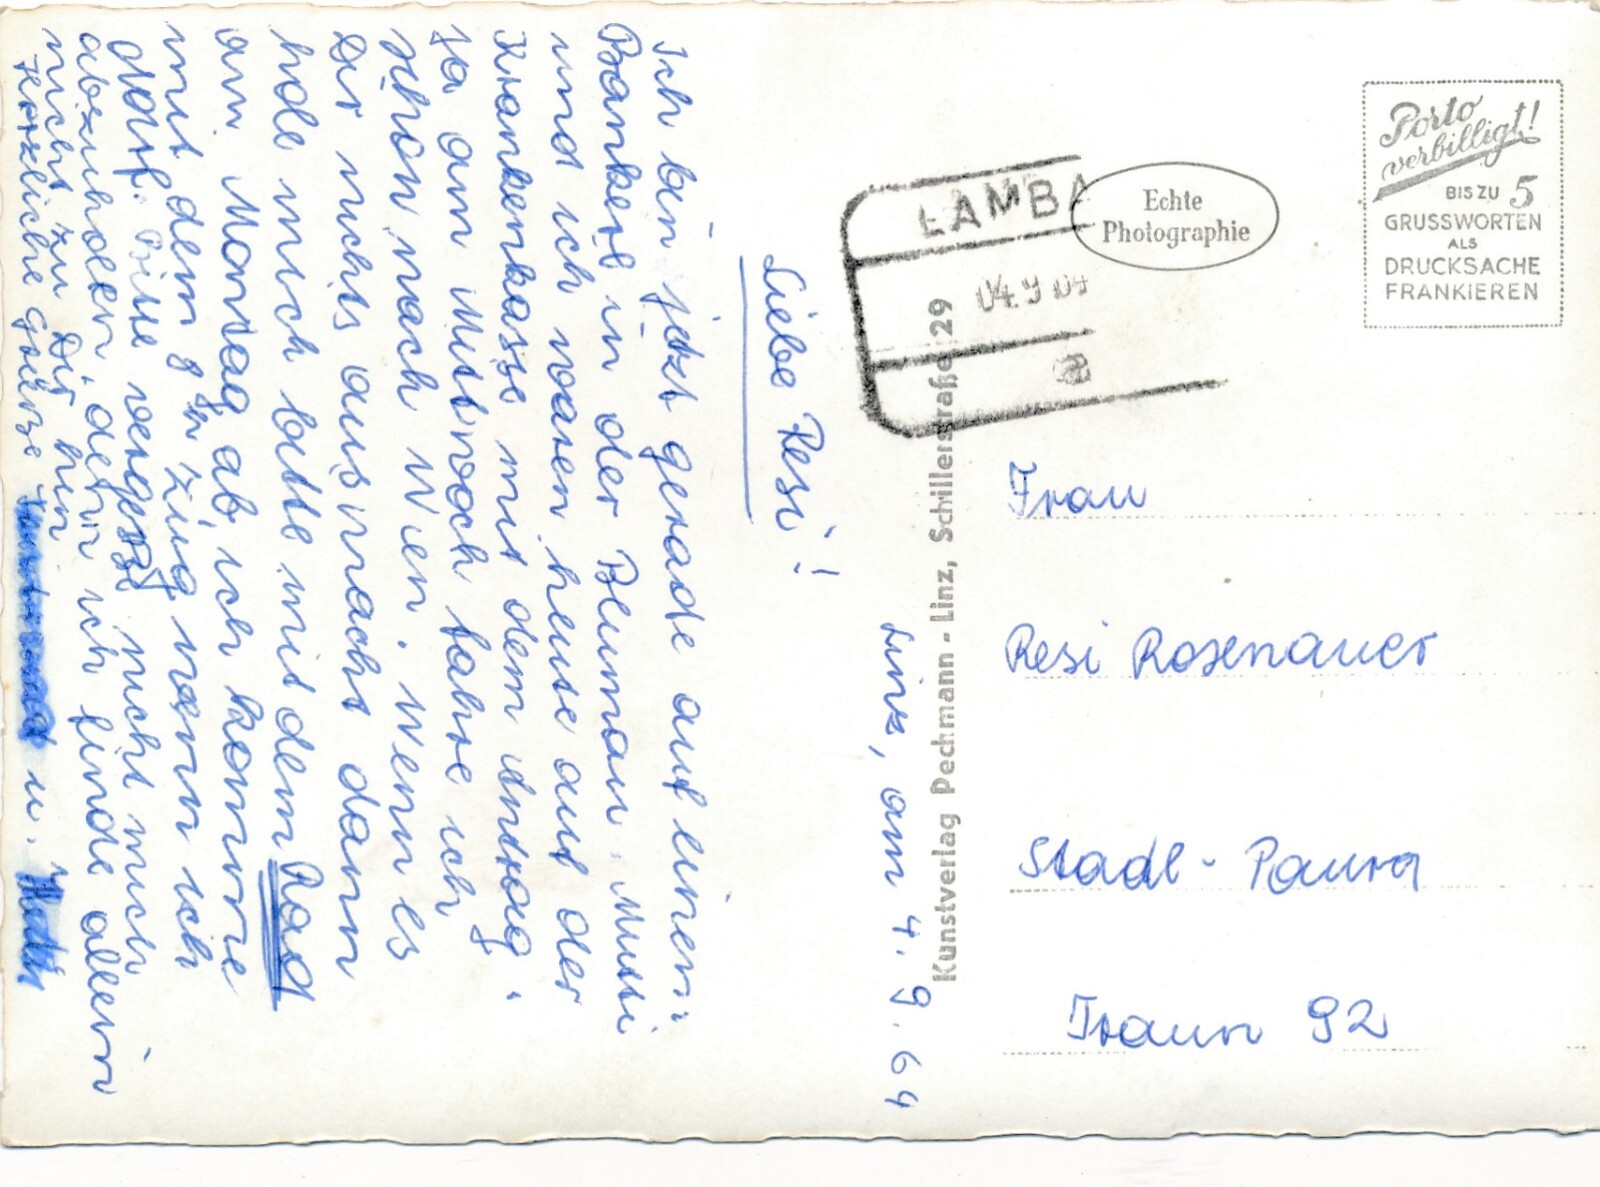 Linz, am 4.9.64
Liebe Resi!
Ich bin jetzt gerade auf einem
Bankerl in der Blumau. Mutti
und ich waren heute auf der
Krankenkasse mit dem Antrag.
Ja am Mittwoch fahre ich
schon nach Wien. Wenn es
Dir nichts ausmacht dann
hole mich bitte mit dem Rad
am Montag ab, ich komme
mit dem 8h Zug wenn ich
darf. Bitte vergeßt nicht mich
abzuholen, denn ich finde allein
nicht zu Dir hin
Herzliche Grüße
u.
Frau
Resi Rosenauer
Stadl-Paura
Traun 92
LAMBA
04.9
a
Echte
Photographie
Porto
verbilligt!
BIS ZU 5
GRUSSWORTEN
ALS
DRUCKSACHE
FRANKIEREN
Kunstverlag Pechmann - Linz, Schillerstraße 29